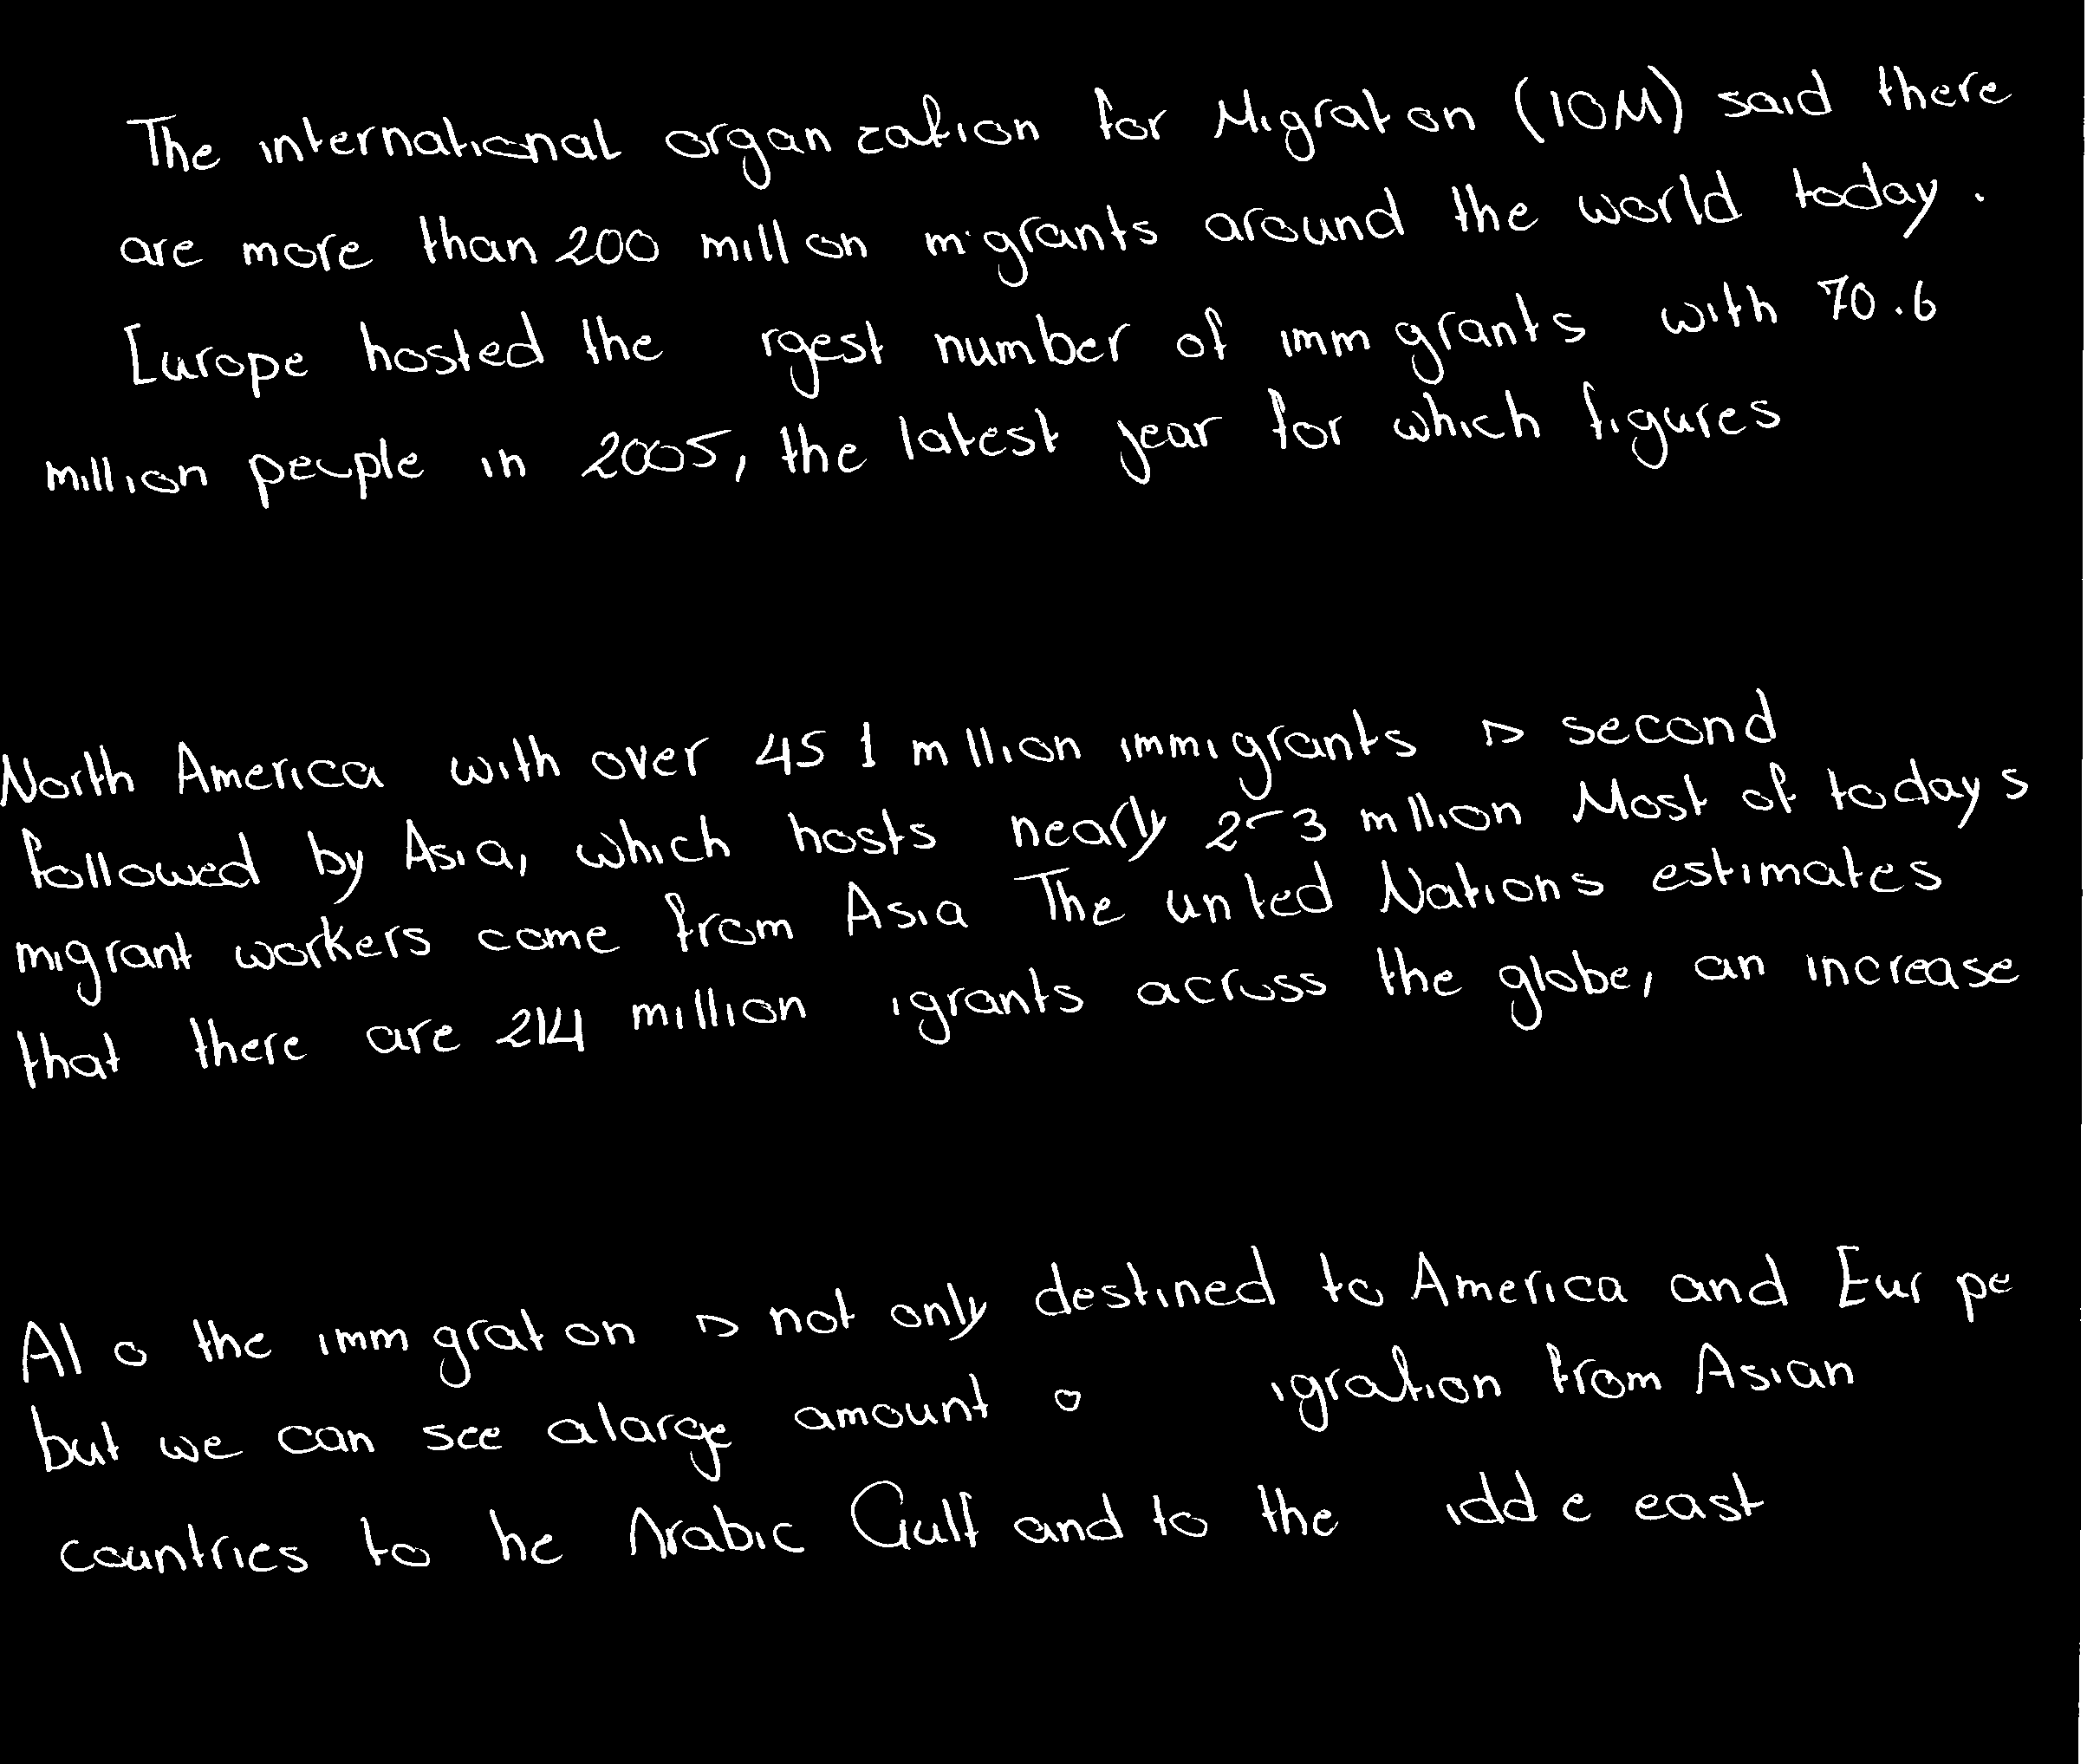 The international organization for Migration (IOM) said there
are more than 200 million migrants around the world today.
Europe hosted the largest number of immigrants with 70.6
million people in 2005, the latest year for which figures
North America with over 45.1 million immigrants is second
followed by Asia, which hosts nearly million Most of todays
migrant workers come from Asia The united Nations estimates
that there are 214 million migrants across the globe, an increase
Also the immigration is not only destined to America and Europe
but we can see alarge amount of migration from Asian
countries to the Arabic Gulf and to the middle east